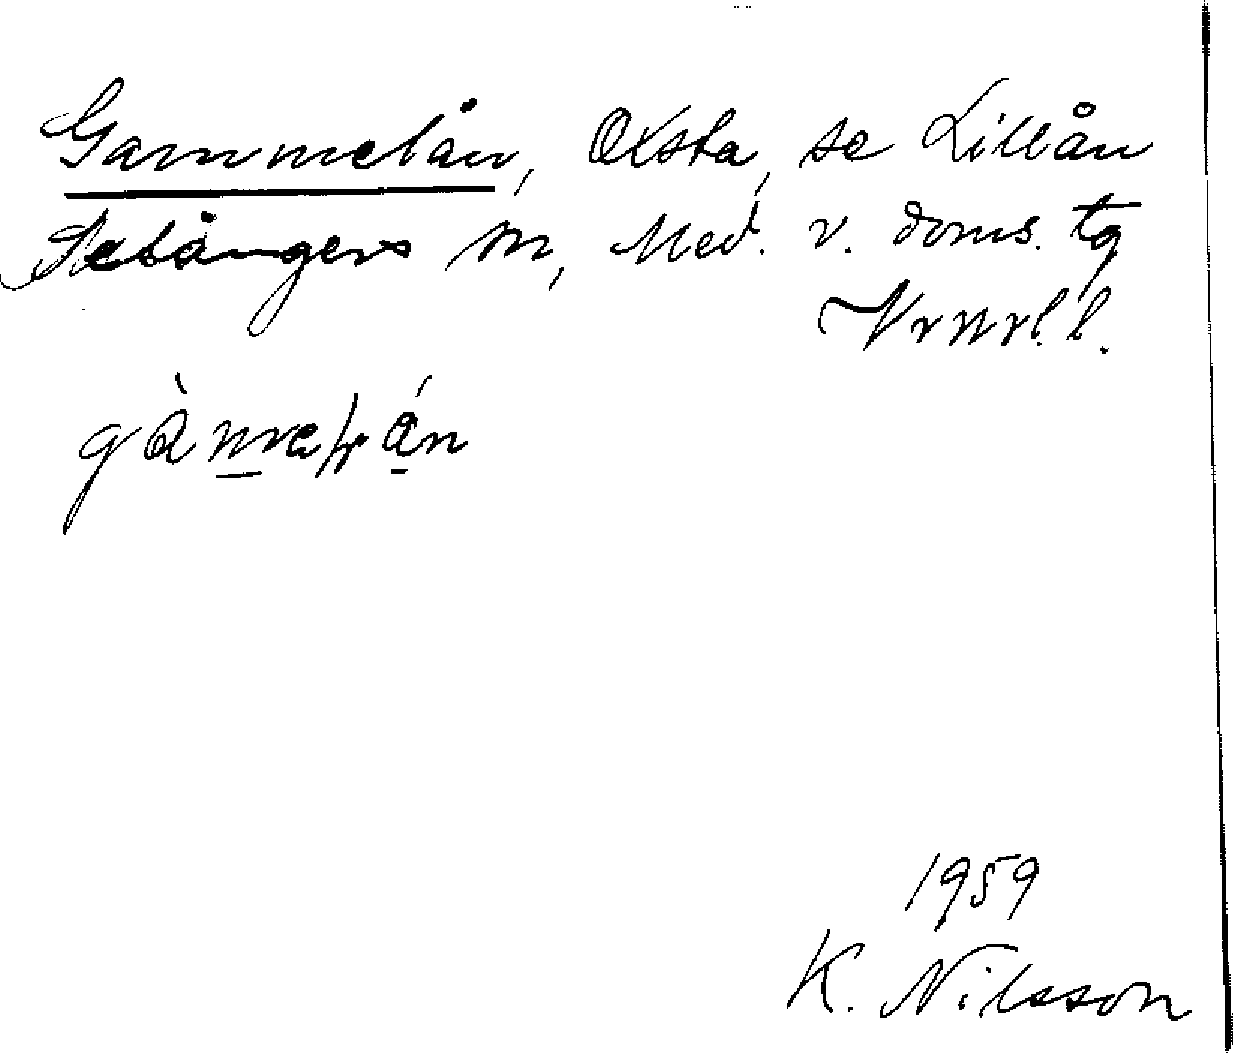 Gammelån, Olsta, se Lillån
Selångers sn, Med. v. doms. tg
Vrnrl. l.
1959
K. Nilsson